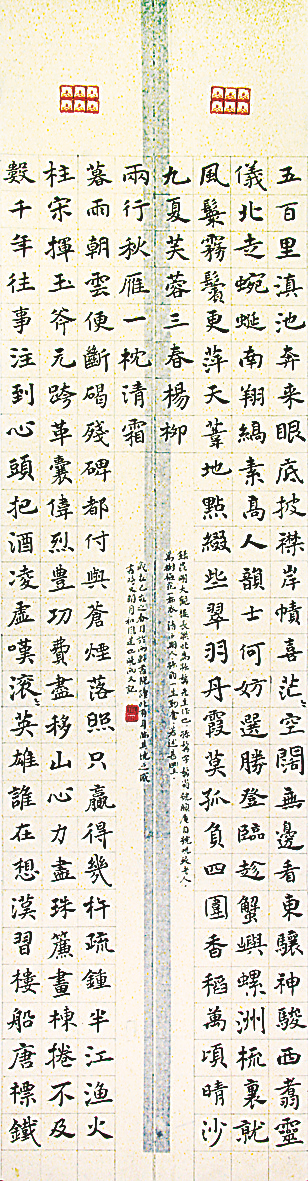 五百里滇池奔来眼底披襟岸幘喜茫〻空闊無邊看東驤神駿西翥靈
儀北走蜿蜒南翔縞素高人韻士何妨選勝登臨趁蟹嶼螺洲梳裏就
風鬟霧鬢更萍天葦地點綴些翠羽丹霞莫孤負四圍香稻萬頃晴沙
九夏芙蓉三春楊柳
數千年往事注到心頭把酒凌虛嘆滾〻英雄誰在想漢習樓船唐標鐵
柱宋揮玉斧元跨革囊偉烈豐功費盡移山心力盡珠簾畫棟捲不及
暮雨朝雲便斷碣殘碑都付與蒼煙落照只贏得幾杵疏鐘半江漁火
兩行秋雁一枕清霜